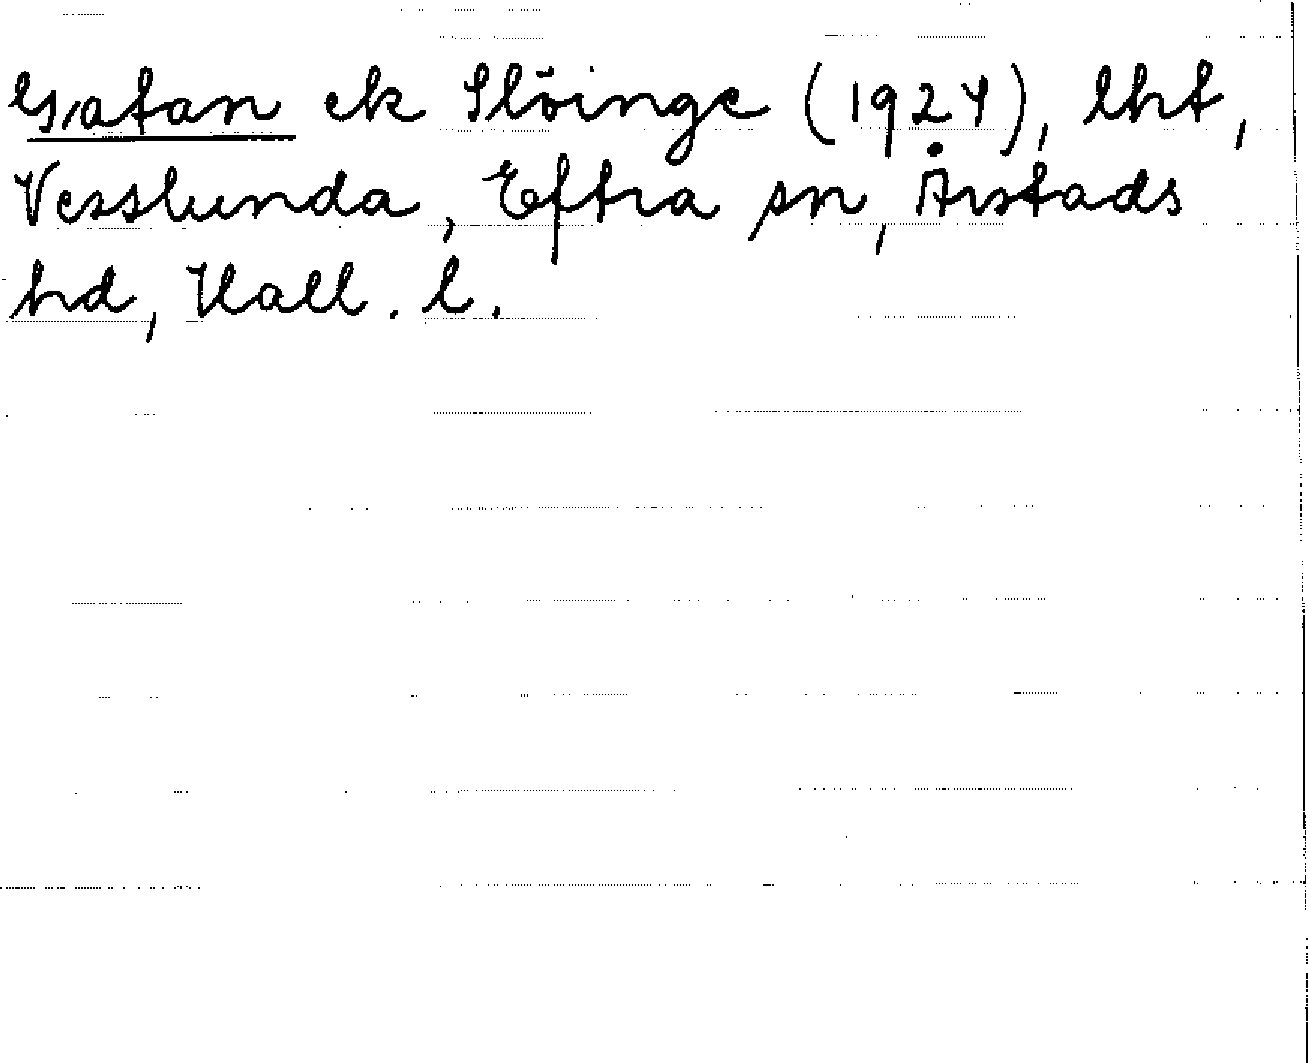 Gatan ek Slöinge (1924), lht,
Vesslunda, Eftra sn, Årstads
hd, Hall. l.